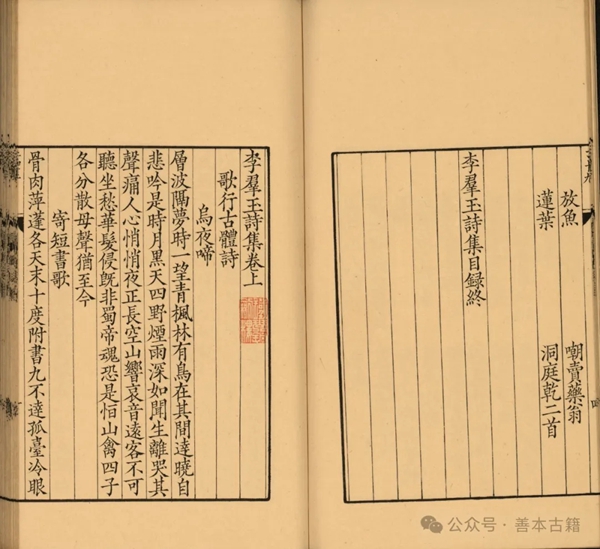 放魚 嘲賣藥翁
蓮葉 洞庭乾二首
李羣玉詩集目録終
李羣玉詩集卷上
歌行古體詩
烏夜啼
層波隔夢時一望青楓林有鳥在其間達曉自
悲吟是時月黑天四野煙雨深如聞生離哭其
聲痛人心悄悄夜正長空山響哀音遠客不可
聽坐愁華髮侵旣非蜀帝魂恐是恒山禽四子
各分散母聲猶至今
寄短書歌
骨肉萍蓬各天末十度附書九不達孤臺冷眼
公众号 · 善本古籍